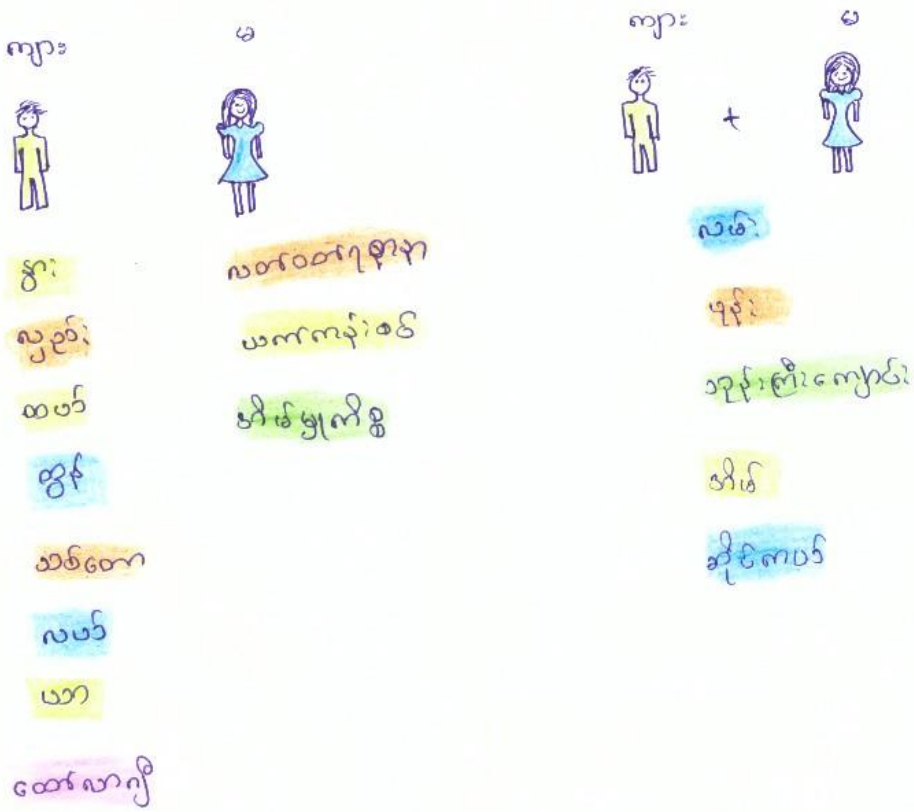 ကျား
မ
နွား
လှည်း
ထယ်
ထွန်
သစ်တော
လယ်
ယာ
ထော်လာဂျီ
လတ်ဝတ်ရစာနာ
ယက်ကန်းစင်
အိမ်မှုကိစ္စ
ကျား
မ
+
လမ်း
ဖုန်း
ဘုန်းကြီးကျောင်း
အိမ်
ဆိုင်ကယ်